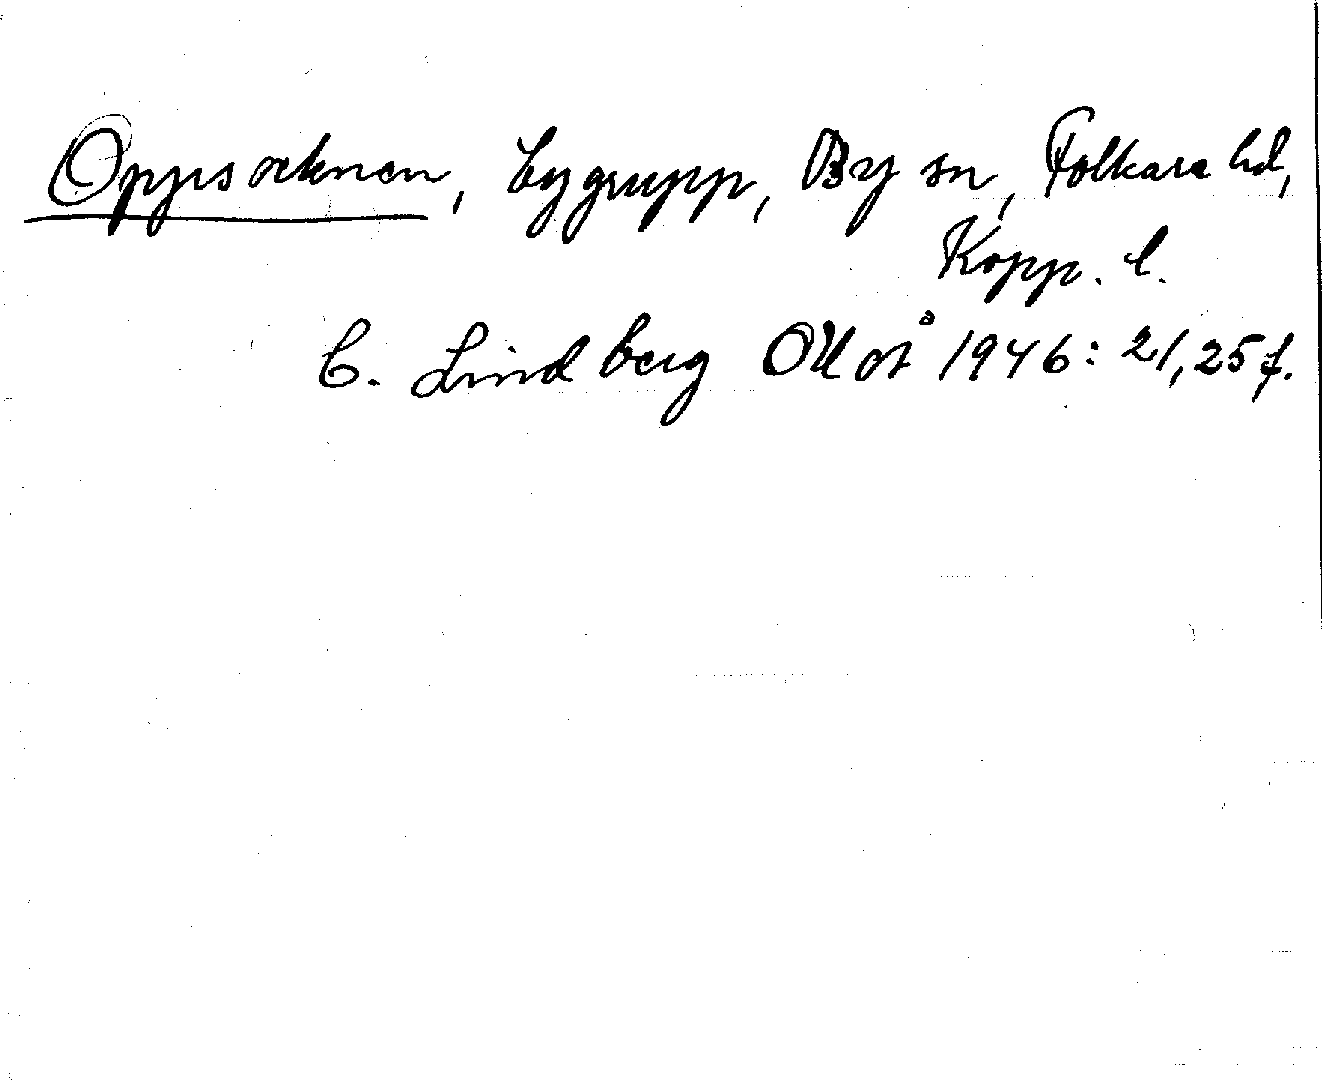 Oppsocknen, bygrupp, By sn, Folkare hd,
Kopp. l.
C. Lindberg OUoÅ 1946: 21, 25 f.